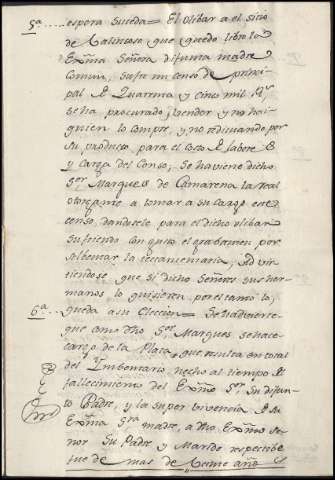 5ª.... espera suceda = El olibar a el sitio
de que quedo libro la
Exma Señora difunta madre
Comun, sufre un censo de princi
pal de Quarenta y cinco mil Rs
se ha procurado vender y no hai
quien lo compre, y no
su producto para el costo de labores
y carga del Censo, se haviene dicho
Sor Marques de Camarena la Real
otorgante a tomar a su cargo este
censo, dandosele para el dicho olibar
sufriendo con gusto el grabamen por
la testamentaria, ad vir
tiendose que si dicho Señores sus her
manos lo quisieren por el tanto lo
6ª.... queda a su eleccion =
que como dho Sor Marques se hace
cargo de la Plata, que resulta en total
del Ymbentario, hecho al tiempo del
fallecimiento del Exmo Sr su difun
to Padre, y la super vivencia de su
Exma Sra madre, a dho Exmo Se
ñor su Padre y Marido respectibe
fue de mas de Veinte años